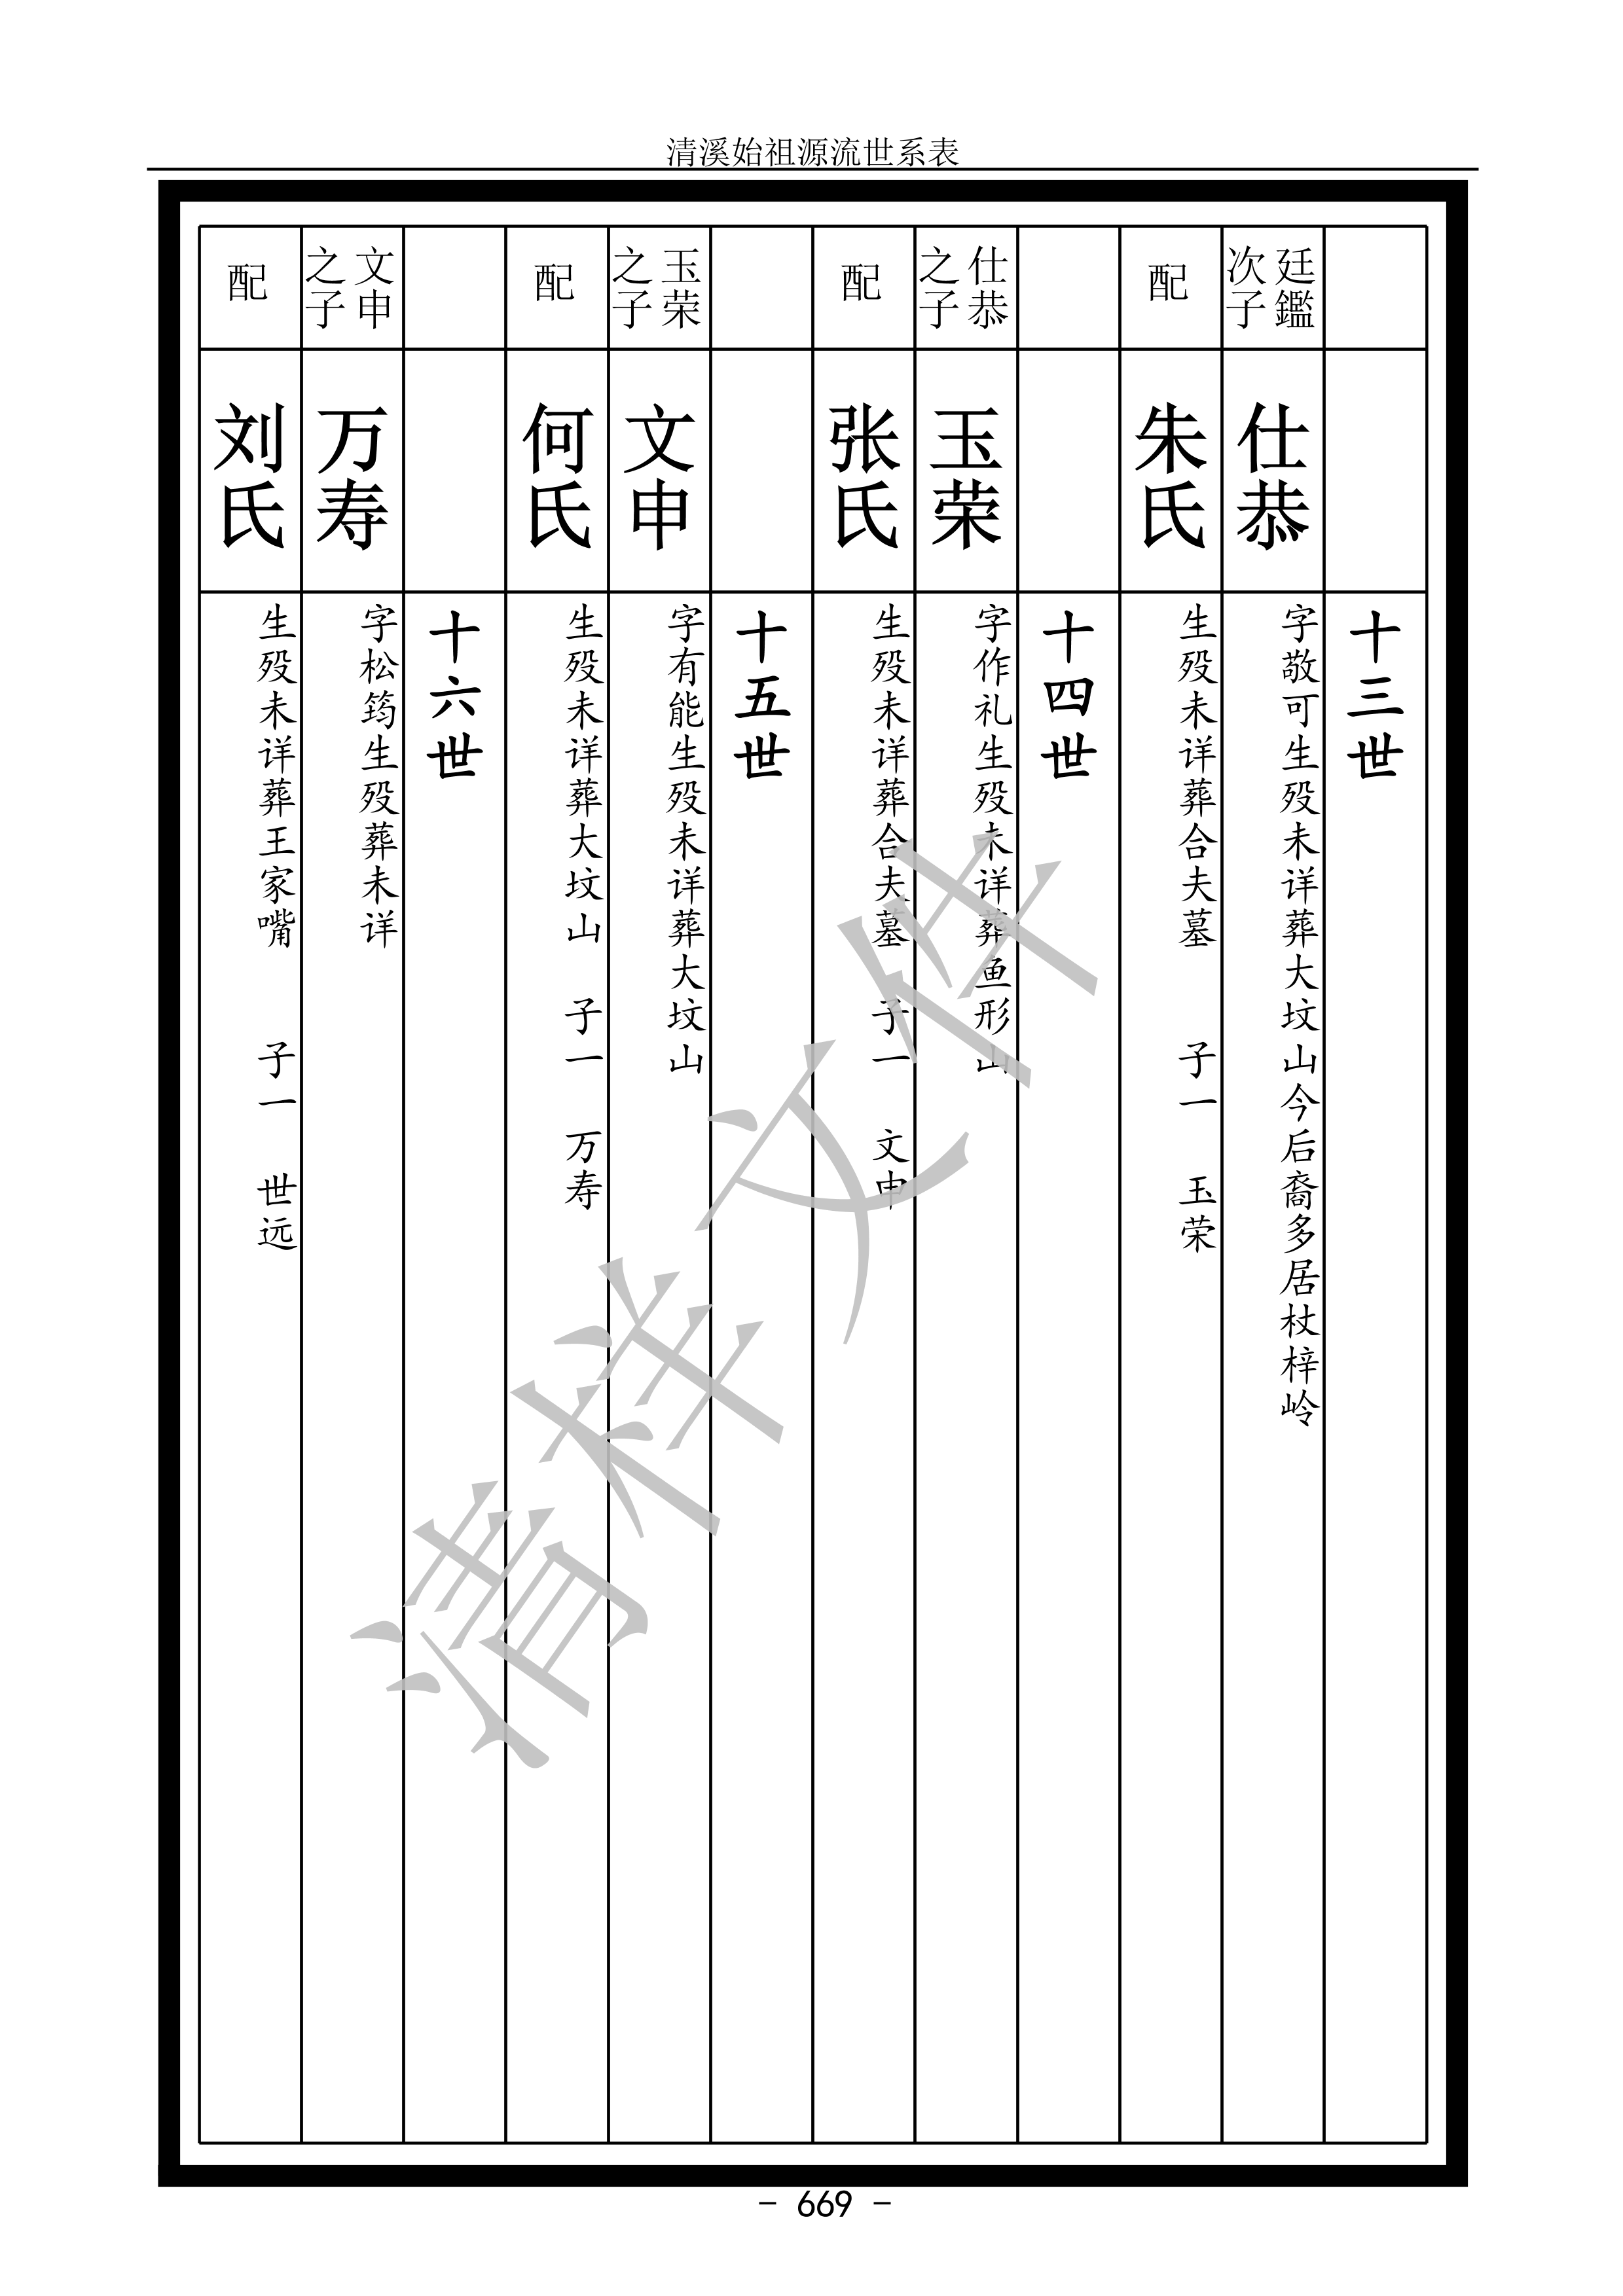 清溪始祖源流世系表
十三世
廷鑑
次子
仕恭
字敬可生殁未详葬大坟山今后裔多居杖梓岭
配
朱氏
生殁未详葬合夫墓 子一 玉荣
十四世
仕恭
之子
玉荣
字作礼生殁未详葬鱼形山
配
张氏
生殁未详葬合夫墓 子一 文申
十五世
玉荣
之子
文申
字有能生殁未详葬大坟山
配
何氏
生殁未详葬大坟山 子一 万寿
十六世
文申
之子
万寿
字松筠生殁葬未详
配
刘氏
生殁未详葬王家嘴 子一 世远
清样文件
- 669 -